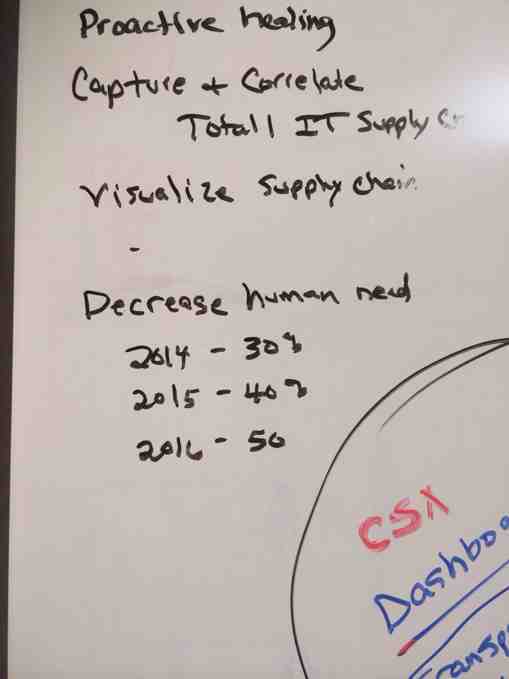 Proactive healing
Capture & Correlate
Totall IT Supply
Visualize supply chain
-
Decrease human need
2014 - 30%
2015 - 40%
2016 - 50
CSX
Dashboo